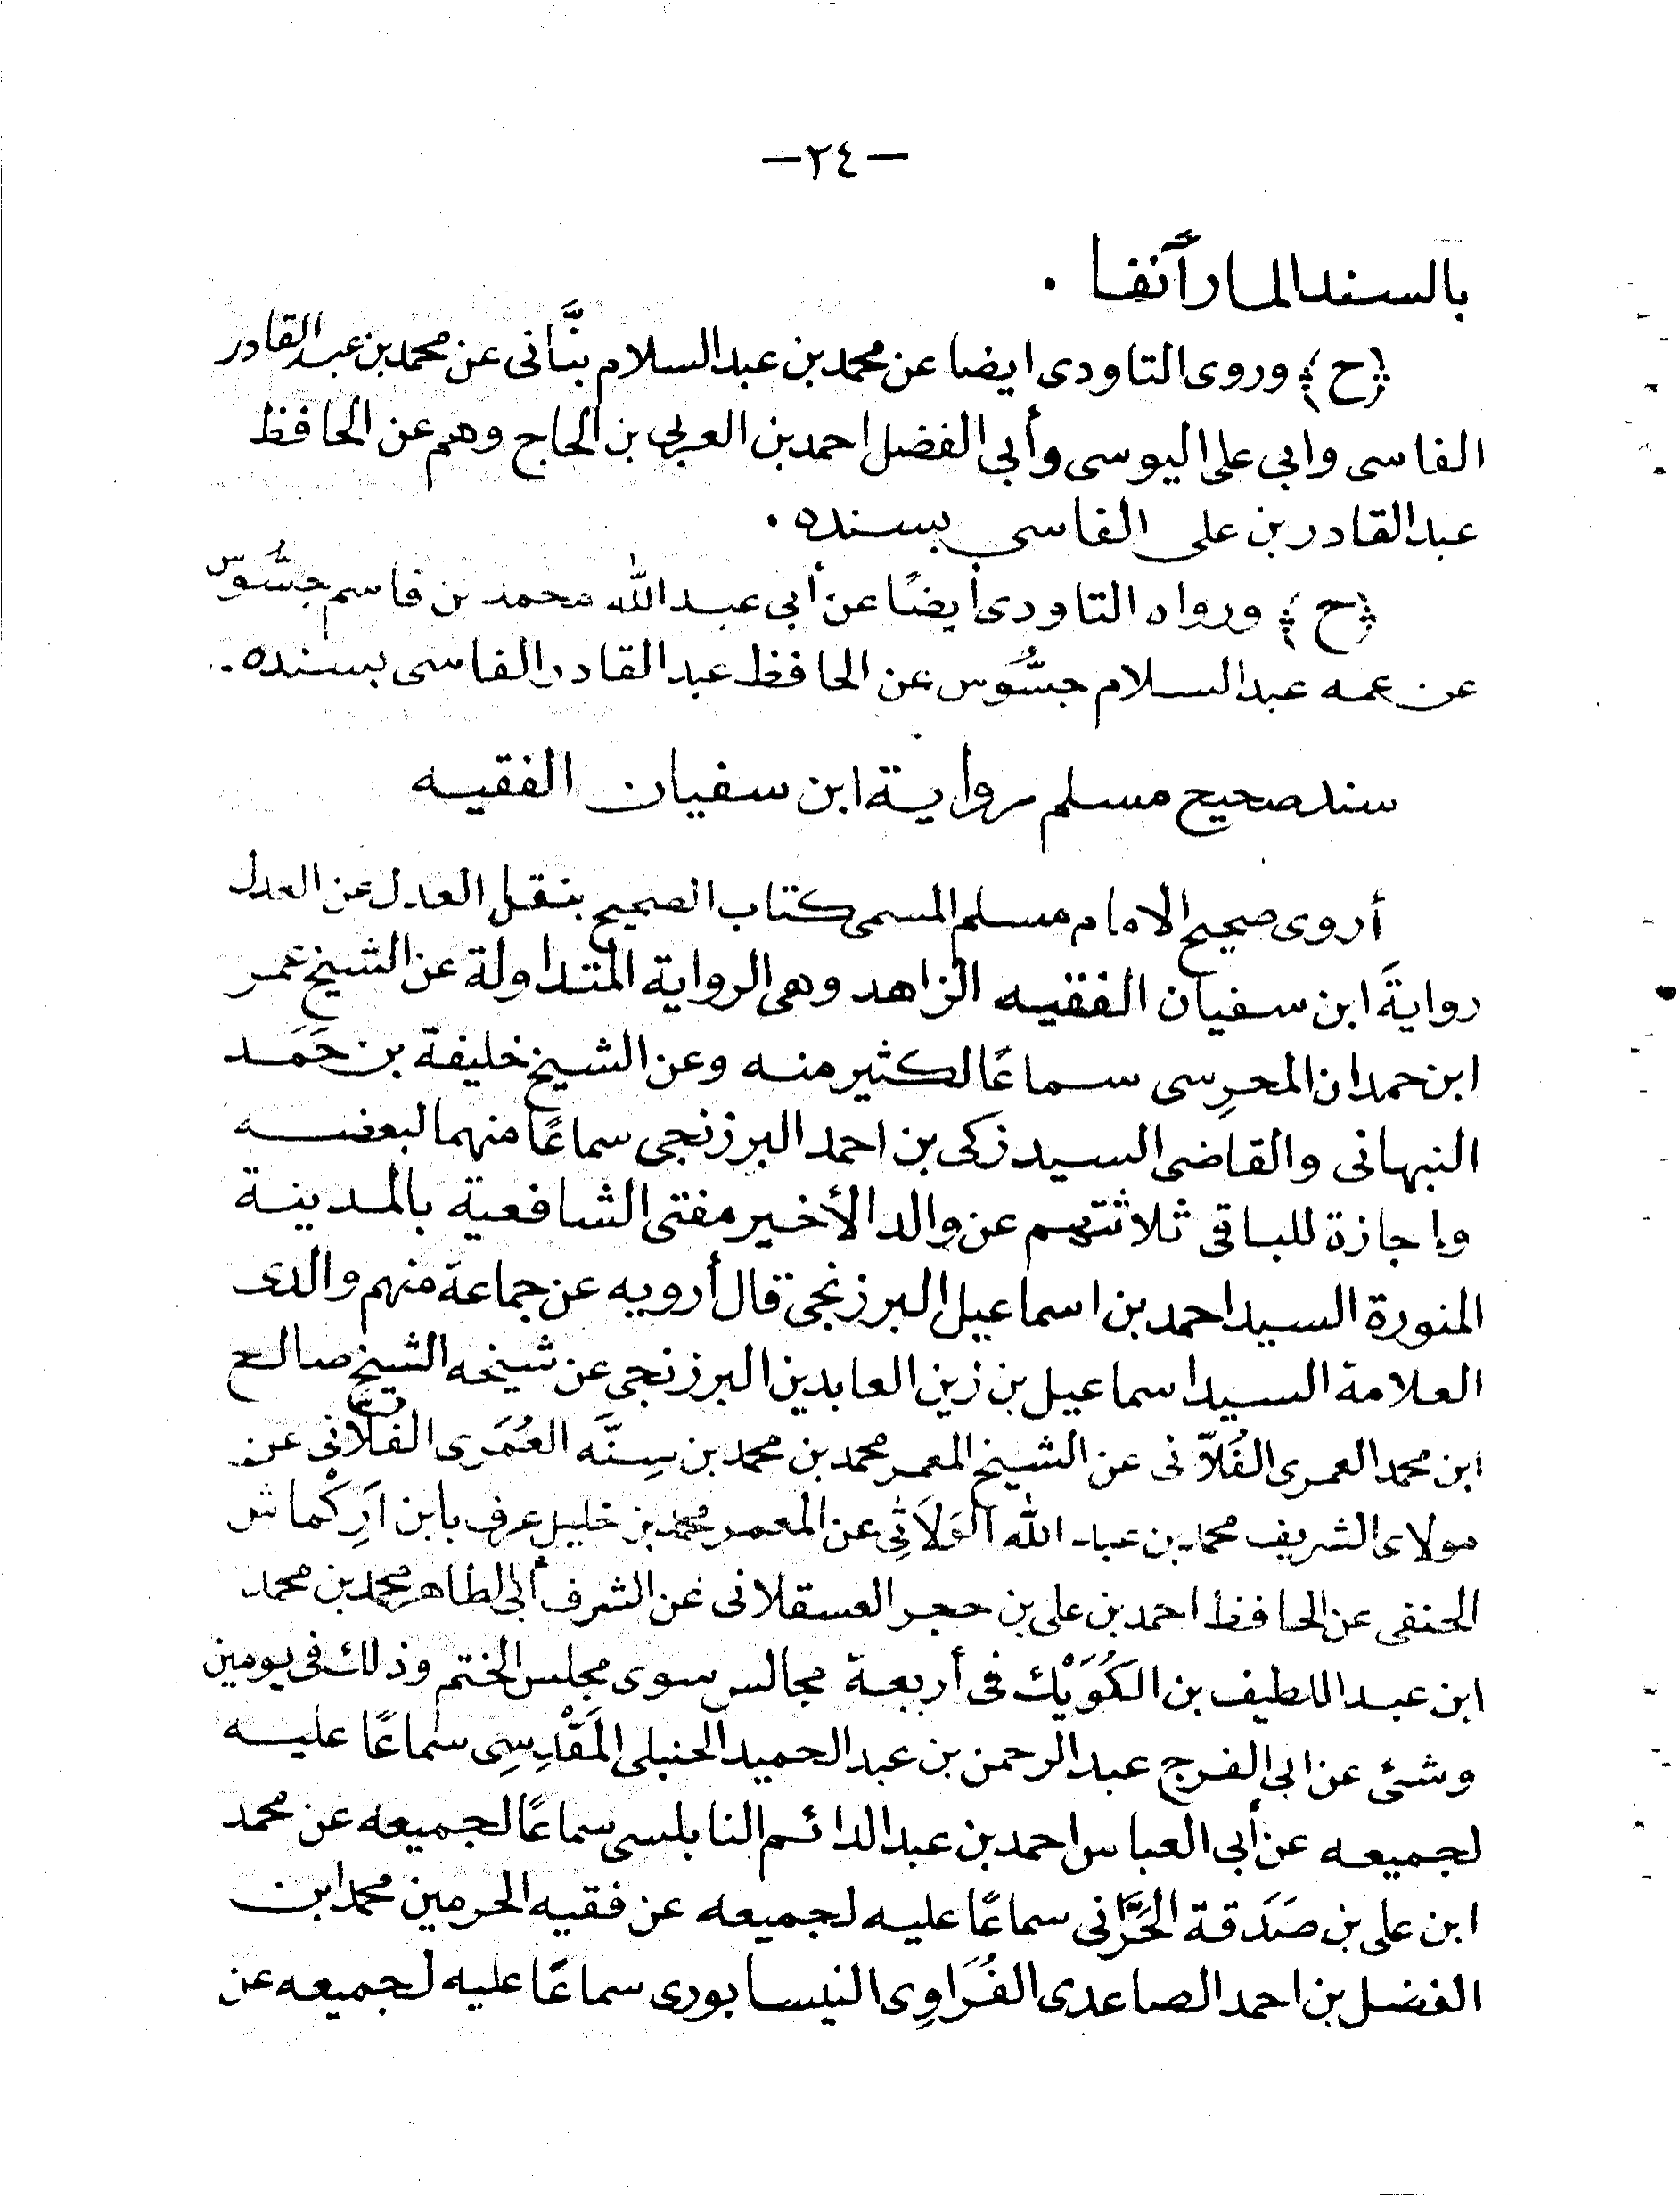 —٢٤—
بالسند المار آنفا .
﴿ح﴾ وروى التاودى ايضا عن محمد بن عبد السلام بنَّانى عن محمد بن عبد القادر
الفاسى وابى على اليوسى وأبي الفضل احمد بن العربي بن الحاج وهم عن الحافظ
عبد القادر بن على الفاسي بسنده .
﴿ح﴾ ورواه التاودى أيضًا عن أبي عبد الله محمد بن قاسم جسُّوس
عن عمه عبد السلام جسُّوس عن الحافظ عبد القادر الفاسى بسنده .
سند صحيح مسلم رواية ابن سفيان الفقيه
أروى صحيح الامام مسلم المسمى كتاب الصحيح بنقل العدل عن العدل
روايةَ ابن سفيان الفقيه الزاهد وهى الرواية المتداولة عن الشيخ عمر
ابن حمدان المحرِسى سماعًا لكثير منه وعن الشيخ خليفة بن حَمَد
النبهانى والقاضى السيد زكى بن احمد البرزنجى سماعًا منهما لبعضه
وإجازة للباقى ثلاثتهم عن والد الأخير مفتى الشافعية بالمدينة
المنورة السيد احمد بن اسماعيل البرزنجى قال أرويه عن جماعة منهم والدى
العلامة السيد اسماعيل بن زين العابدين البرزنجى عن شيخه الشيخ صالح
ابن محمد العمرى الفُلاّنى عن الشيخ المعمر محمد بن محمد بن سِنَّه العُمَرى الفلّانى عن
مولاى الشريف محمد بن عبد الله الوَلَاتِي عن المعمر محمد بن خليل عرف بابن اَرِكْماش
الحنفى عن الحافظ احمد بن على بن حجر العسقلانى عن الشرف أبى الطاهر محمد بن محمد
ابن عبد اللطيف بن الكُوَيْك فى أربعة مجالس سوى مجلس الختم وذلك فى يومين
وشئ عن ابي الفرج عبد الرحمن بن عبد الحميد الحنبلى المَقْدِسِى سماعًا عليه
لجميعه عن أبى العباس احمد بن عبد الدائم النابلسى سماعًا لجميعه عن محمد
ابن على بن صَدَقة الحَرَّانى سماعًا عليه لجميعه عن فقيه الحرمين محمد ابن
الفضل بن احمد الصاعدى الفُرَاوِى النيسابورى سماعًا عليه لجميعه عن